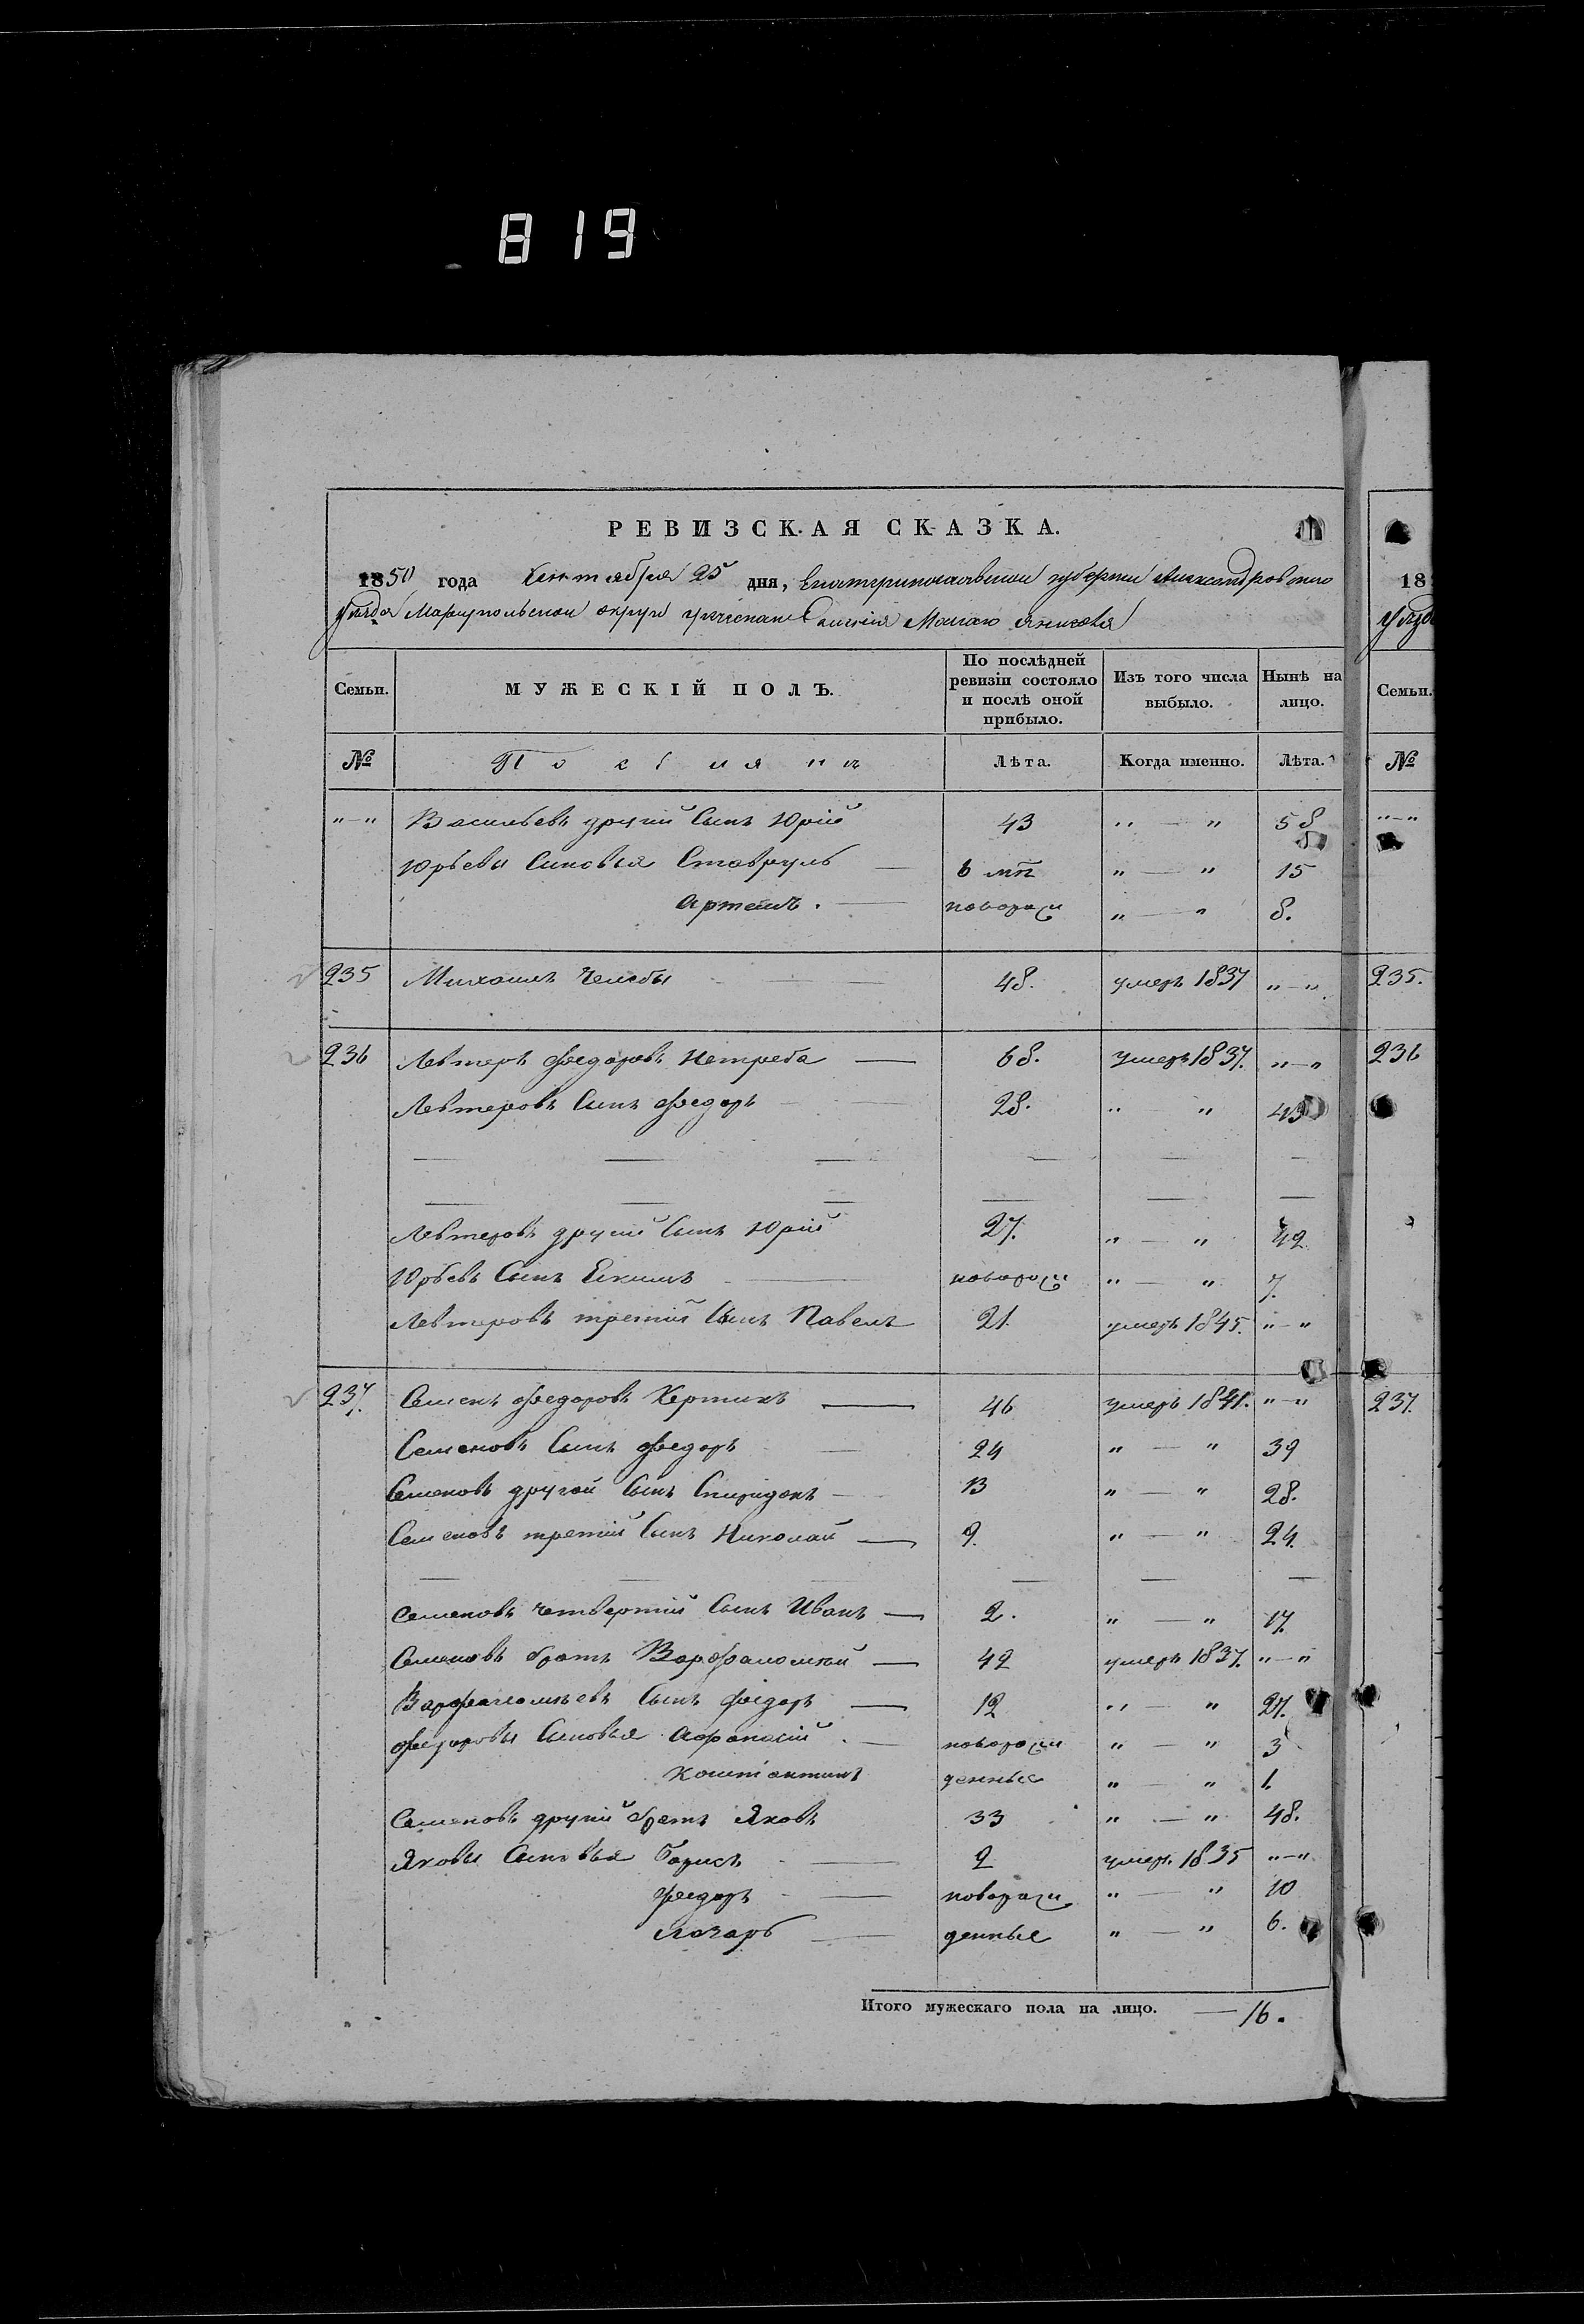 819
РЕВИЗСКАЯ СКАЗКА.
1850 года Сентября 25 дня, Екатеринославской губернии Александровского
уезда Мариупольском округе греческаго Селенія Малаго Янисоля
Семьи. МУЖЕСКІЙ ПОЛЪ. По послѣдней ревизіи состояло и послѣ оной прибыло. Изъ того числа выбыло. Нынѣ на лицо.
№ Поселянъ Лѣта. Когда именно. Лѣта.
"—" Васильевъ другій Сынъ Юрій 43 " — " 58
Юрьевы Синовья Ставруль 6 мц " — " 15
Артемъ. новорож " — " 8.
235 Михаилъ Челебы 48. умеръ 1837 "—"
236 Левтеръ Федоровъ Нетреба 68. умеръ 1837. "—"
Левтеровъ Сынъ Федоръ 28. " " 43
Левтеровъ другій Сынъ Юрій 27. " — " 42
Юрьевъ Сынъ Екимъ новорож " — " 7.
Левтеровъ третій Сынъ Павелъ 21. умеръ 1845. "—"
237. Семенъ Федоровъ Хертихъ 46 умеръ 1841. "—"
Семеновъ Сынъ Федоръ 24 " — " 39
Семеновъ другой Сынъ Спиридонъ 13 " — " 28.
Семеновъ третій Сынъ Николай 9. " — " 24.
Семеновъ четвертій Сынъ Иванъ 2. " — " 17.
Семеновъ братъ Варфаломей 42 умеръ 1837. "—"
Варфаломѣевъ Сынъ Фѣдоръ 12 " — " 27.
Федоровы Синовья Афанасій новорож " — " 3
Константинъ денные " — " 1.
Семеновъ другій братъ Яковъ 33 " — " 48.
Яковы Синовья Борисъ 2 умеръ 1835 "—"
Федоръ новорож " — " 10
Лазарь денные " — " 6.
Итого мужескаго пола на лицо. — 16.
18
уезд
Семьи.
№
"—"
235.
236
237.